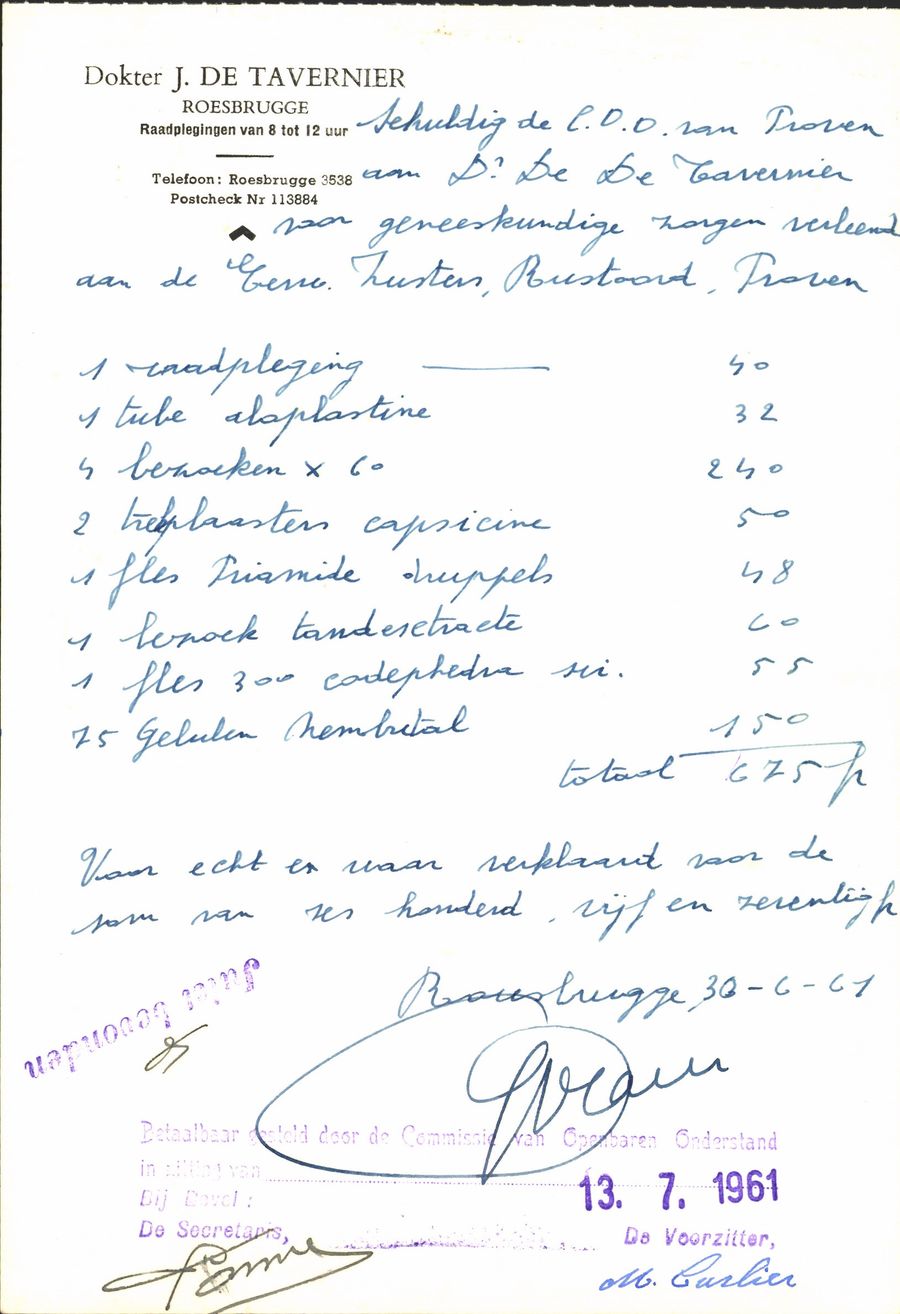 Dokter J. DE TAVERNIER
ROESBRUGGE
Raadplegingen van 8 tot 12 uur
Telefoon: Roesbrugge 3538
Postcheck Nr 113884
Schuldig de C.O.O. van Proven
aan Dr De De Tavernier
voor geneeskundige zorgen verleend
aan de Eerw. Zusters, Rustoord, Proven
1 raadpleging — 40
1 tube alaplastine 32
4 bezoeken x 60 240
2 trekplaasters capsicine 50
1 fles Priamide druppels 48
1 bezoek tandextractie 60
1 fles 300 codephedra sir. 55
75 Gelulen Nembutal 150
totaal 675 fr
Voor echt en waar verklaard voor de
som van zes honderd, vijf en zeventig fr
Roesbrugge, 30-6-61
Juist bevonden
Betaalbaar gesteld door de Commissie van Openbaren Onderstand
in zitting van 13. 7. 1961
Bij Bevel :
De Secretaris, De Voorzitter,
M. Carlier